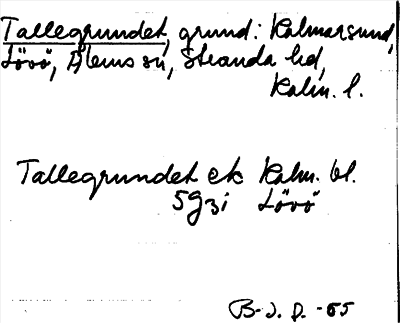 Tallegrundet, grund: Kalmarsund,
Lövö, Ålems sn, Stranda hd,
Kalm. l.
Tallegrundet ek Kalm. bl.
5G3i Lövö
B-J. P. -65